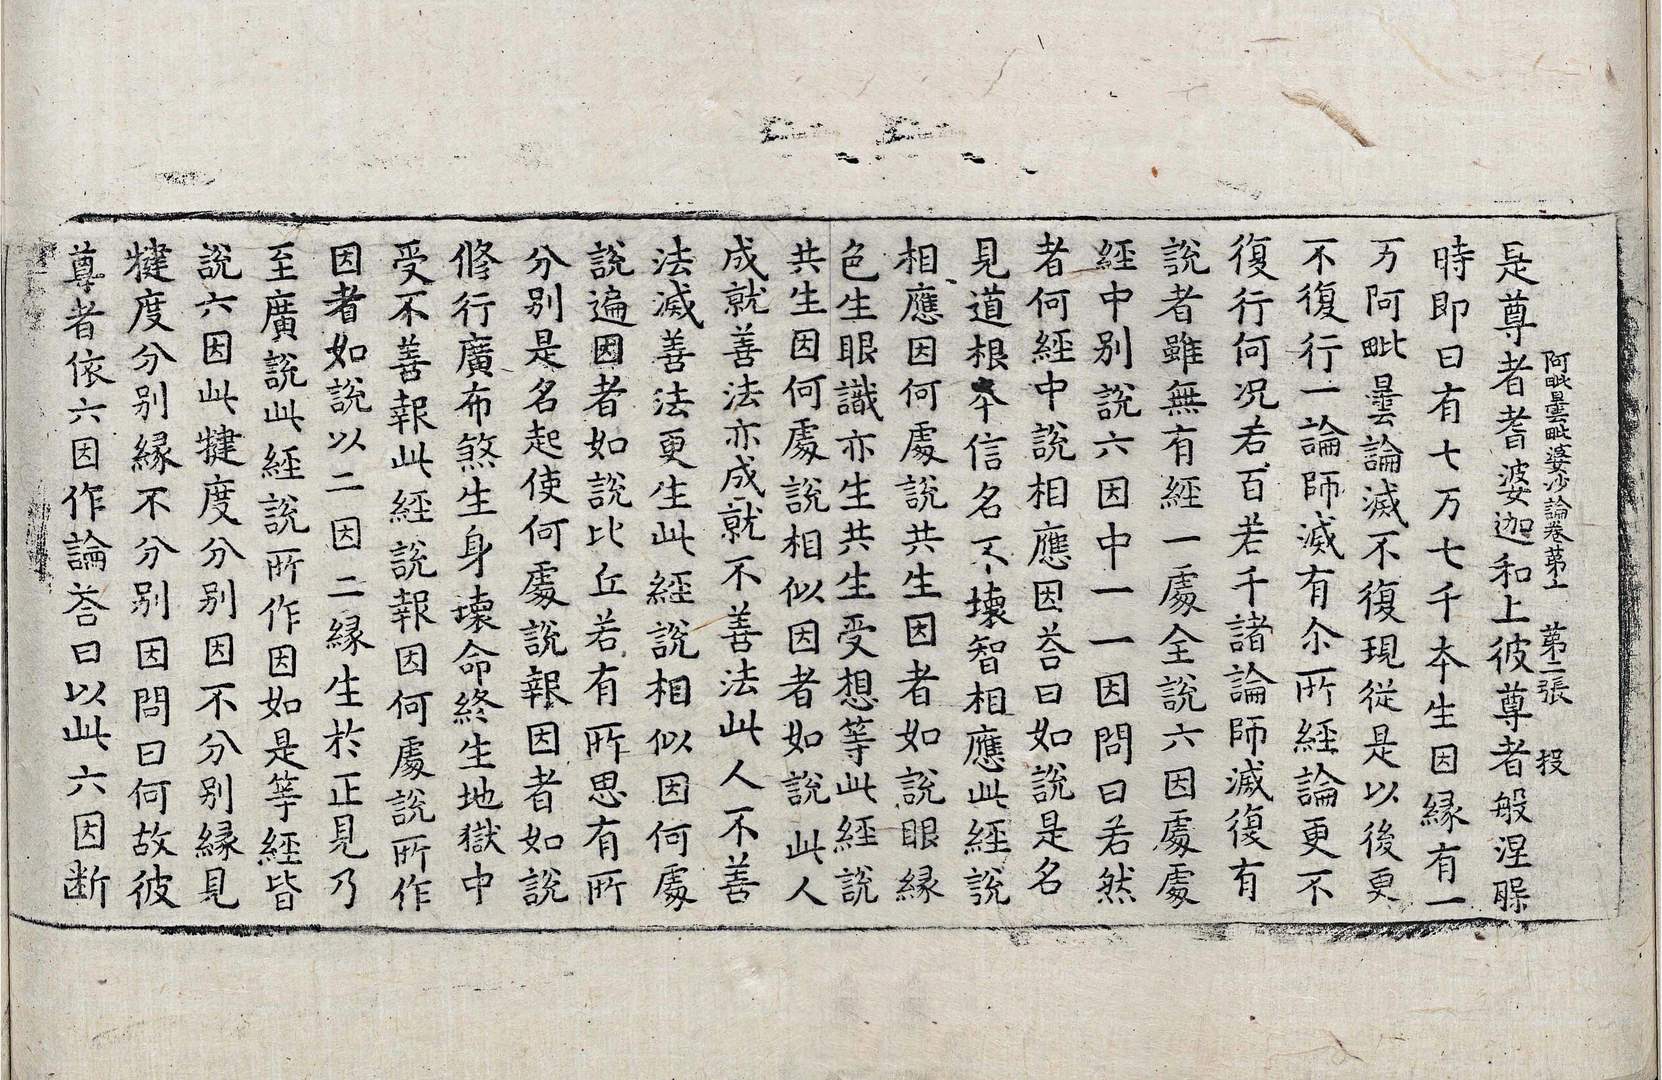 阿毗曇毗婆沙論卷第十一 第二張 投
是尊者耆婆迦和上彼尊者般涅脲
時即日有七万七千夲生因縁有一
万阿毗曇論滅不復現従是以後更
不復行一論師滅有尒所經論更不
復行何况若百若千諸論師滅復有
說者雖無有經一處全說六因處處
經中别說六因中一一因問曰若然
者何經中說相應因荅曰如說是名
見道根夲信名不壊智相應此經說
相應因何處說共生因者如說眼縁
色生眼識亦生共生受想等此經說
共生因何處說相似因者如說此人
成就善法亦成就不善法此人不善
法滅善法更生此經說相似因何處
說遍因者如說比丘若有所思有所
分别是名起使何處說報因者如說
修行廣布煞生身壊命終生地獄中
受不善報此經說報因何處說所作
因者如說以二因二縁生於正見乃
至廣說此經說所作因如是等經皆
說六因此揵度分别因不分别縁見
揵度分别縁不分别因問曰何故彼
尊者依六因作論荅曰以此六因断